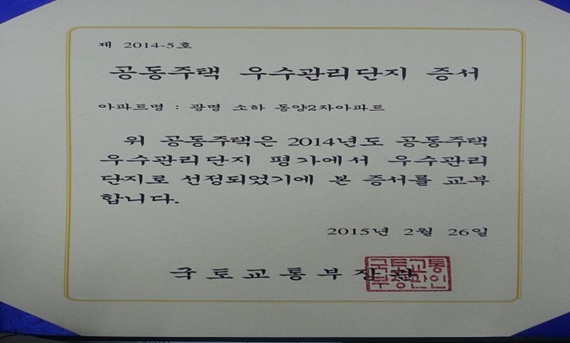 제 2014-5호
공동주택 우수관리단지 증서
아파트명 : 광명 소하 동양2차아파트
위 공동주택은 2014년도 공동주택
우수관리단지 평가에서 우수관리
단지로 선정되었기에 본 증서를 교부
합니다.
2015년 2월 26일
국토교통부장관
국토교통
부장관인